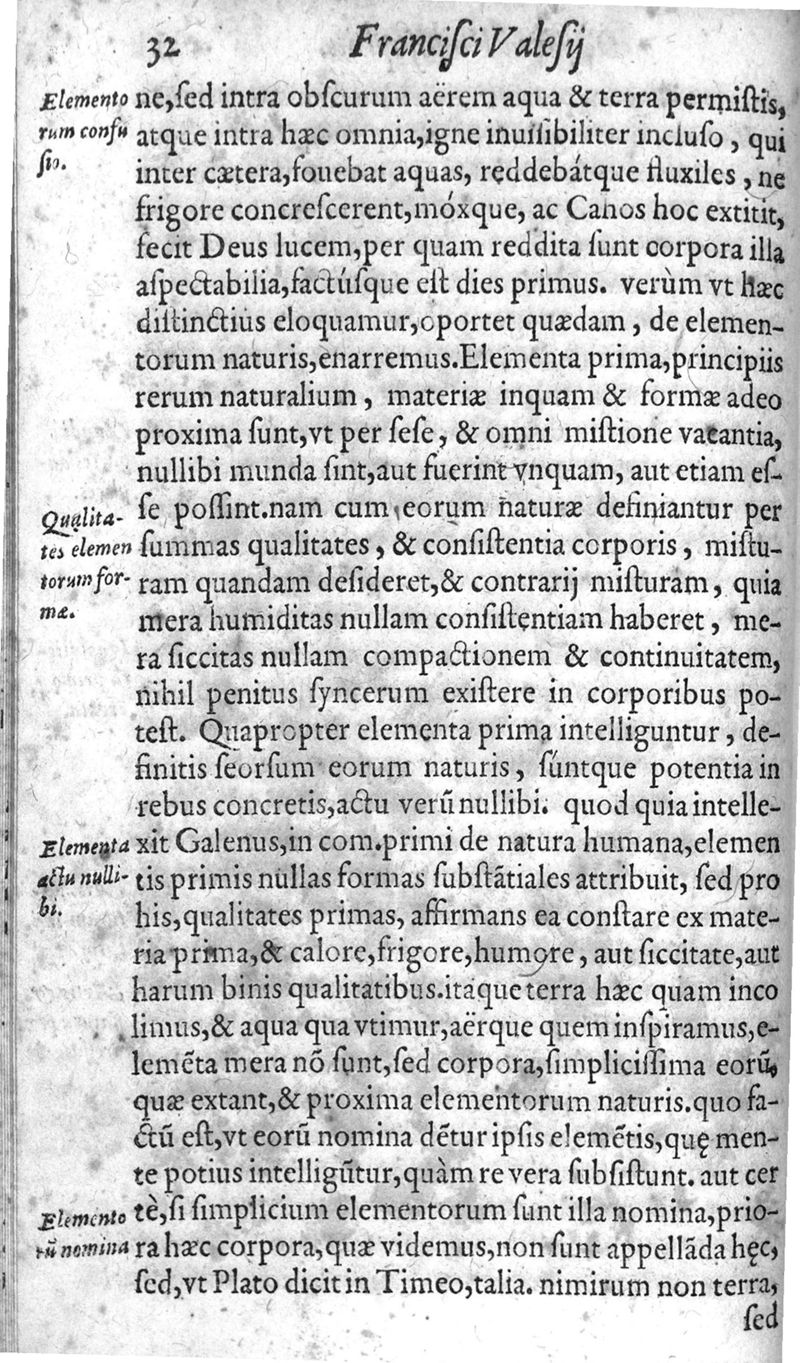 32 Franciſci Valeſij
Elemento
rum confu
ſio.
ne,ſed intra obſcurum aërem aqua & terra permiſtis,
atque intra hæc omnia,igne inuiſibiliter incluſo, qui
inter cætera,fouebat aquas, reddebátque fluxiles, ne
frigore concreſcerent,móxque, ac Cahos hoc extitit,
fecit Deus lucem,per quam reddita ſunt corpora illa
aſpectabilia,factúſque eſt dies primus. verùm vt hæc
diſtinctius eloquamur,oportet quædam, de elemen-
torum naturis,enarremus.Elementa prima,principiis
rerum naturalium, materiæ inquam & formæ adeo
proxima ſunt,vt per ſeſe, & omni miſtione vacantia,
nullibi munda ſint,aut fuerint vnquam, aut etiam eſ-
Qualita-
tes elemen
torum for-
mæ.
ſe poſſint.nam cum eorum naturæ definiantur per
ſummas qualitates, & conſiſtentia corporis, miſtu-
ram quandam deſideret,& contrarij miſturam, quia
mera humiditas nullam conſiſtentiam haberet, me-
ra ſiccitas nullam compactionem & continuitatem,
nihil penitus ſyncerum exiſtere in corporibus po-
teſt. Quapropter elementa prima intelliguntur, de-
finitis ſeorſum eorum naturis, ſúntque potentia in
rebus concretis,actu verũ nullibi. quod quia intelle-
Elementa
actu nulli-
bi.
xit Galenus,in com.primi de natura humana,elemen
tis primis nullas formas ſubſtãtiales attribuit, ſed pro
his,qualitates primas, affirmans ea conſtare ex mate-
ria prima,& calore,frigore,humore, aut ſiccitate,aut
harum binis qualitatibus.itaque terra hæc quam inco
limus,& aqua qua vtimur,aërque quem inſpiramus,e-
lemẽta mera nõ ſunt,ſed corpora,ſimpliciſſima eorũ,
quæ extant,& proxima elementorum naturis.quo fa-
ctũ eſt,vt eorũ nomina dẽtur ipſis elemẽtis,quę men-
te potius intelligũtur,quàm re vera ſubſiſtunt. aut cer
Elemento
rũ nomina
tè,ſi ſimplicium elementorum ſunt illa nomina,prio-
ra hæc corpora,quæ videmus,non ſunt appellãda hęc,
ſed,vt Plato dicit in Timeo,talia. nimirum non terra,
ſed